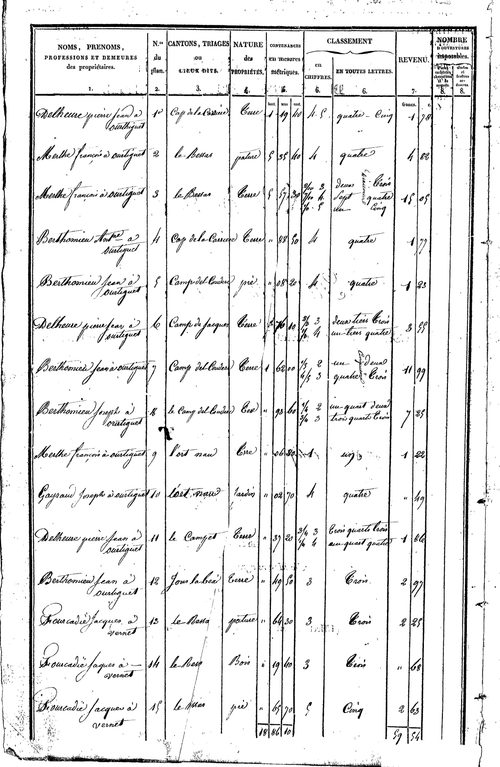 NOMS, PRENOMS, PROFESSIONS ET DEMEURES des propriétaires. N.os du plan. CANTONS, TRIAGES ou LIEUX DITS. NATURE des PROPRIÉTÉS. CONTENANCES en mesures métriques. CLASSEMENT en CHIFFRES. EN TOUTES LETTRES. REVENU. NOMBRE D'OUVERTURES imposables.
1. 2. 3. 4. 5. 6. 6. 7. 8. 8.
Delheure pierre jean à ourtiguet 1 Cap de la Carrière Terre 1 19 40 4 5 quatre - Cinq 1 78
Merthe françois à ourtiguet 2 le Bessas pature 5 35 60 4 quatre 4 82
Merthe françois à ourtiguet 3 le Bessas Terre 5 57 30 3 4 5 deux Trois Sept quatre un Cinq 15 05
Berthomieu à ourtiguet 4 Cap de la Carrière Terre " 88 50 4 quatre 1 77
Berthomieu Jean à ourtiguet 5 Camp del pré " 08 20 4 quatre 1 23
Delheure pierre jean à ourtiguet 6 Camp de jacques Terre 10 2/3 3 1/3 4 deux tiers Trois un tiers quatre 3 55
Berthomieu Jean à ourtiguet 7 Camp del Terre 1 62 00 1/5 2 4/5 3 un - deux quatre - Trois 11 99
Berthomieu Joseph à ourtiguet 8 le Camp del Terre " 93 60 1/4 2 3/4 3 un quart deux trois quarts Trois 7 25
Merthe françois à ourtiguet 9 l'ort nau Terre " 06 20 1 un 1 22
Gayraud Joseph à ourtiguet 10 l'ort nau Jardin " 02 70 4 quatre " 49
Delheure pierre Jean à ourtiguet 11 le Campet Terre " 37 20 3/4 3 1/4 4 Trois quarts Trois un quart quatre 1 86
Berthomieu Jean à ourtiguet 12 Terre " 49 50 3 Trois 2 97
Fourcadié Jacques à vernet 13 le Bessa pature " 64 30 3 Trois 2 25
Fourcadié Jaques à vernet 14 le Bois " 19 60 3 Trois " 68
Fourcadié Jacques à vernet 15 le pré " 65 70 5 Cinq 2 63
18 86 10 59 54